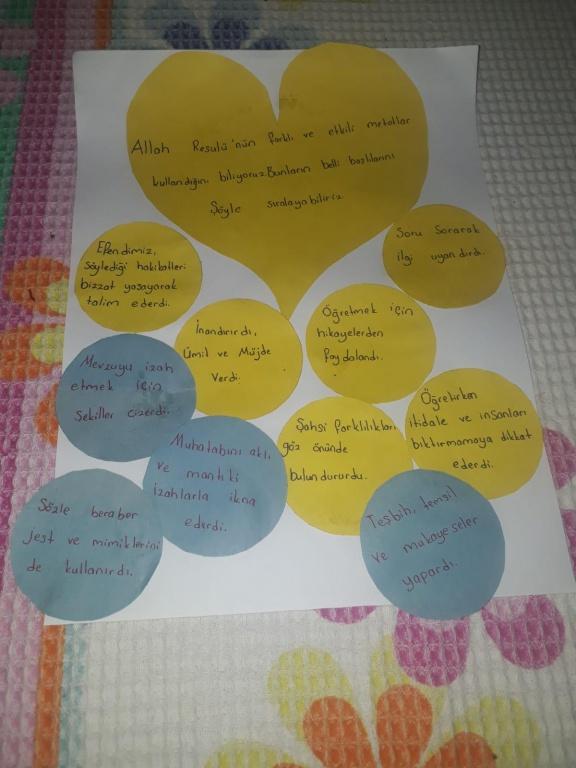 Allah Resulü'nün farklı ve etkili metotlar
kullandığını biliyoruz. Bunların belli başlılarını
Şöyle sıralayabiliriz.
Soru Sorarak
ilgi uyandırdı.
Efendimiz,
söylediği hakikatleri
bizzat yaşayarak
talim ederdi.
İnandırırdı,
Ümit ve Müjde
Verdi.
Öğretmek için
hikayelerden
faydalandı.
Mevzuyu izah
etmek için
Şekiller çizerdi.
Muhatabını akli
ve mantıki
izahlarla ikna
ederdi.
Şahsi farklılıkları
göz önünde
bulundururdu.
Öğretirken
itidale ve insanları
bıktırmamaya dikkat
ederdi.
Sözle beraber
jest ve mimiklerini
de kullanırdı.
Teşbih, temsil
ve mukayeseler
yapardı.